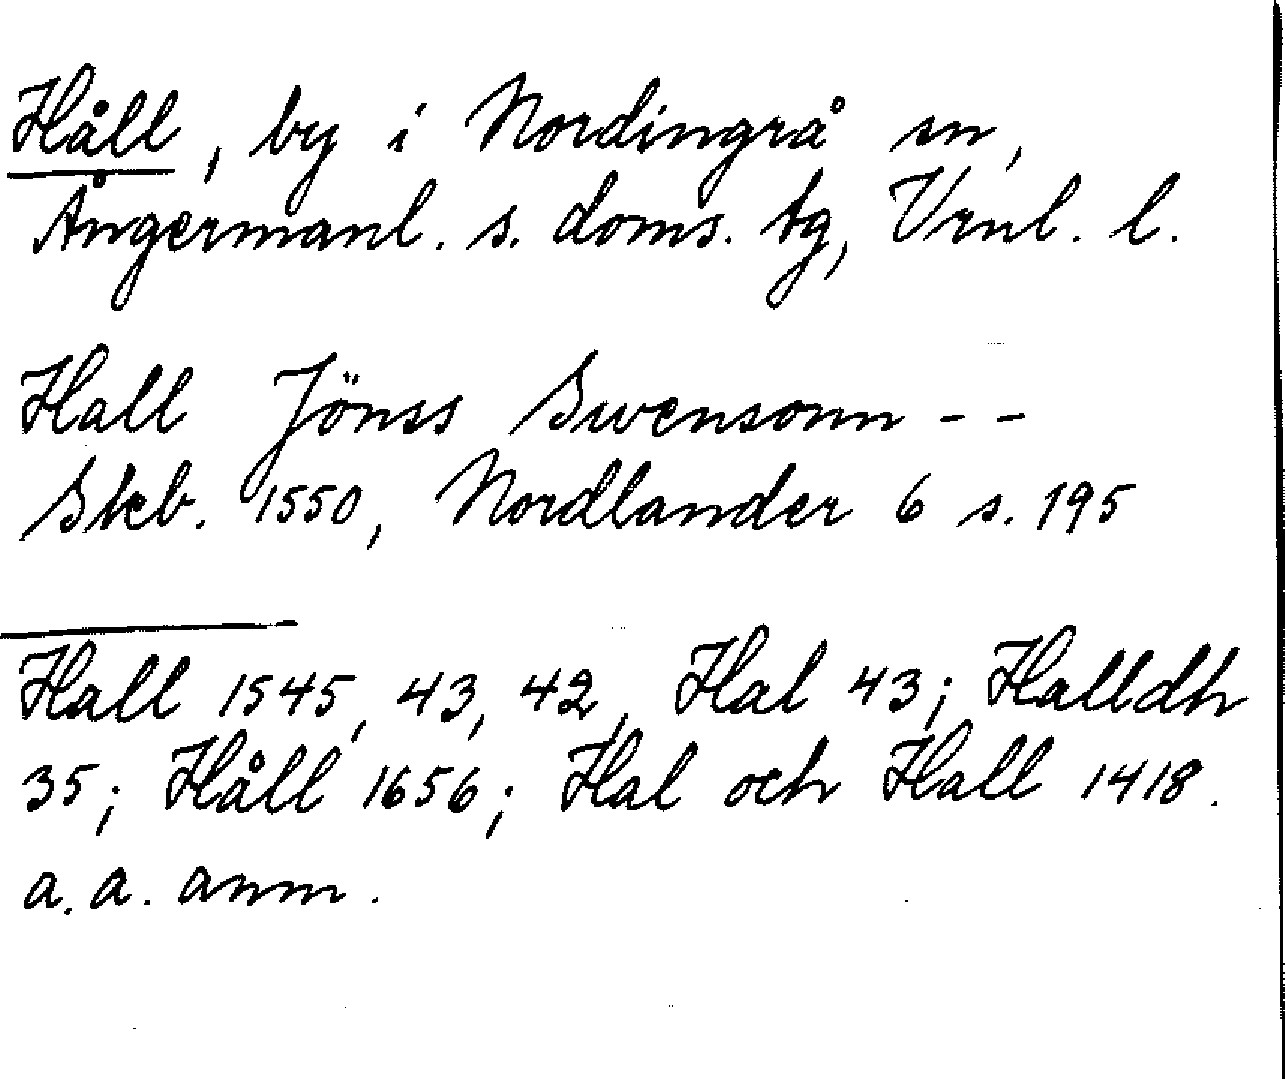 Håll, by i Nordingrå sn,
Ångermanl. s. doms. tg, Vrnl. l.
Hall Jönss Swensonn - -
Skb. 1550, Nordlander 6 s. 195
Hall 1545, 43, 42, Hal 43; Halldh
35; Håll 1656; Hal och Hall 1418.
a. a. anm.